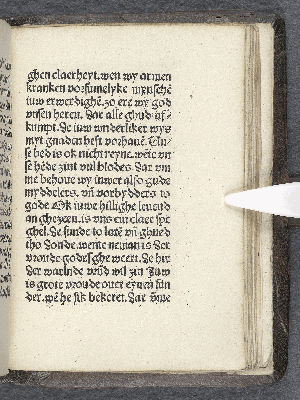 ghen claerheyt. wen wy armen
kranken vorsumelyke mynschē
iuw erwerdighē. zo ere wy god
vnsen heren. Dar alle ghud af⸗
kumpt. Se iuw wnderliker wys
myt gnaden heft vorhauē. Vn⸗
se bed is ok nicht reyne. wēte vn
se hēde zint vul blodes. Dar vm
me behoue wy iuwer also gude
myddelers. vn̄ vorbydders to
gode Ok iuwe hillighe leuend
an ghezeen. is vns ein claer spe
ghel. De sunde to latē vn̄ ghued
tho donde. wente neman is der
vroude godes ghe weert. De hir
der warlnde vrūd wil zin Juw
is grote vroude ouer eynen sun
der. wē he sik bekeret. Dar vme